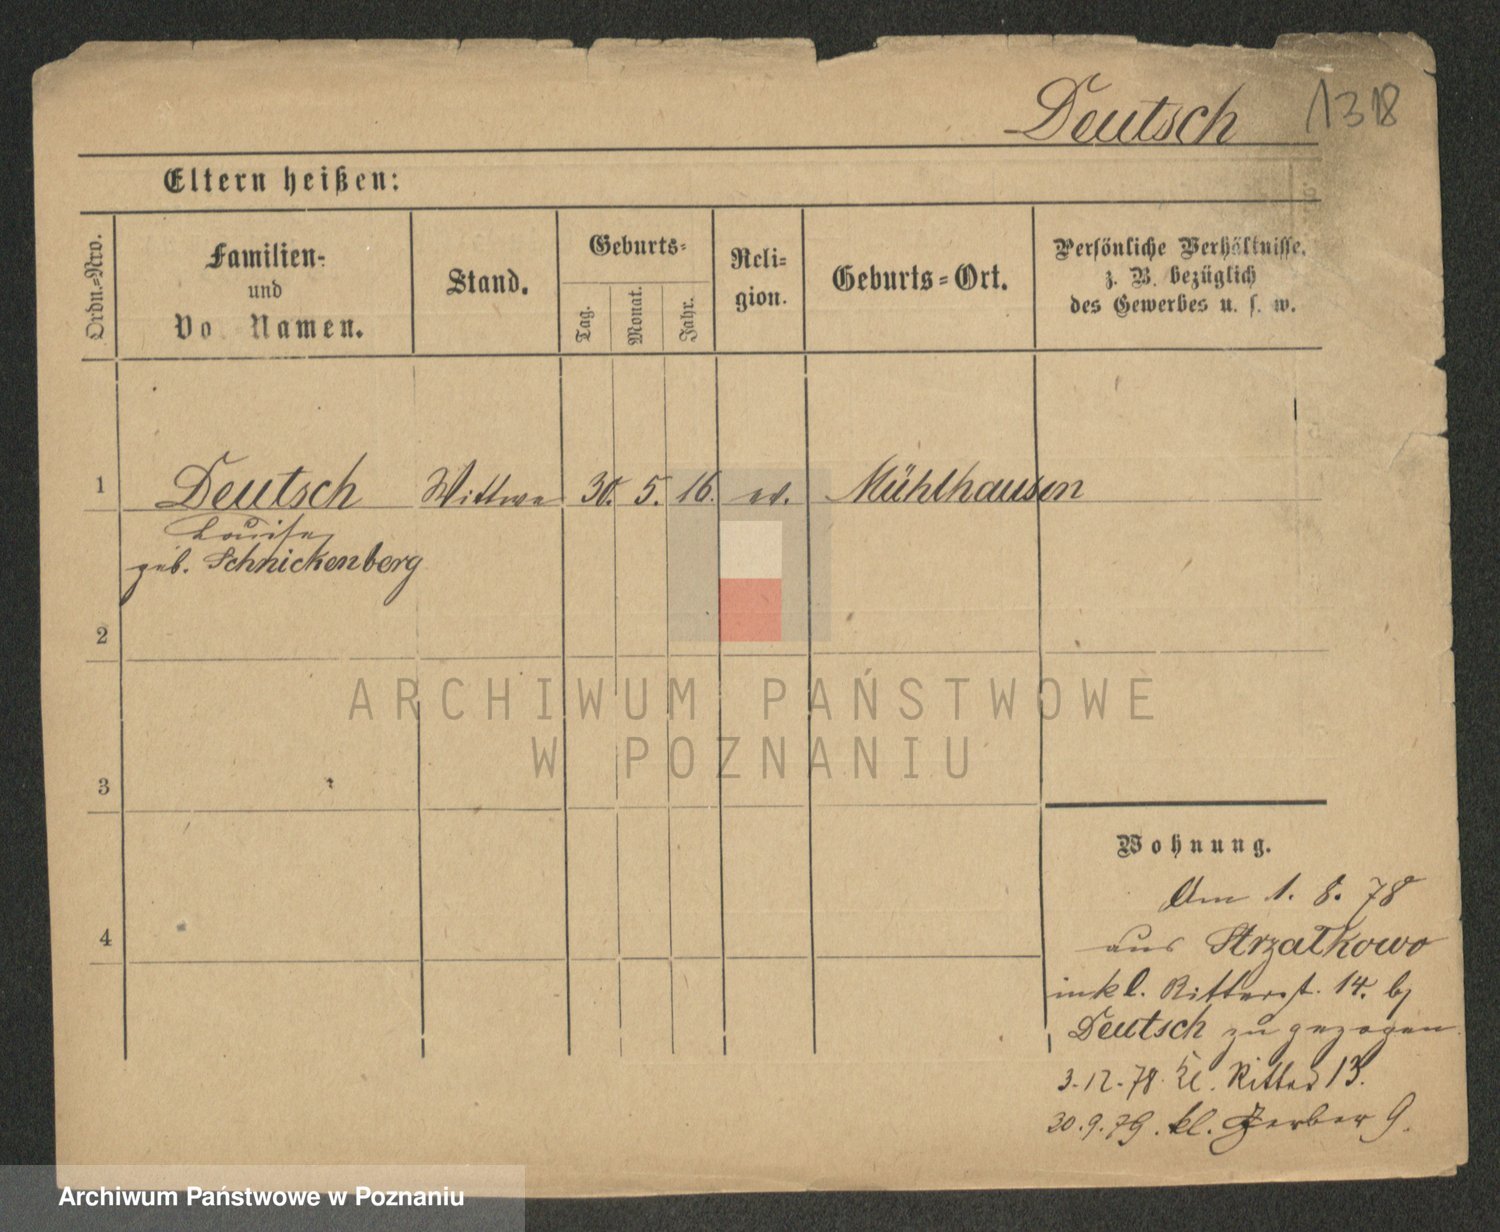 Deutsch 1318
Eltern heißen:
Ordn.-Nro.
Familien-
und
Vo Namen.
Stand.
Geburts-
Tag.
Monat.
Jahr.
Reli-
gion.
Geburts-Ort.
Persönliche Verhältnisse,
z. B. bezüglich
des Gewerbes u. s. w.
1 Deutsch Wittwe 30. 5. 16. ev. Mühlhausen
Louise
geb. Schnickenberg
2
ARCHIWUM PAŃSTWOWE
W POZNANIU
3
Wohnung.
Am 1. 8. 78
4
aus Strzałkowo
Ritterst. 14. bj
Deutsch zu gezogen
3-12-78. kl. Ritter 13.
30.9.79. kl. Gerber 9.
Archiwum Państwowe w Poznaniu